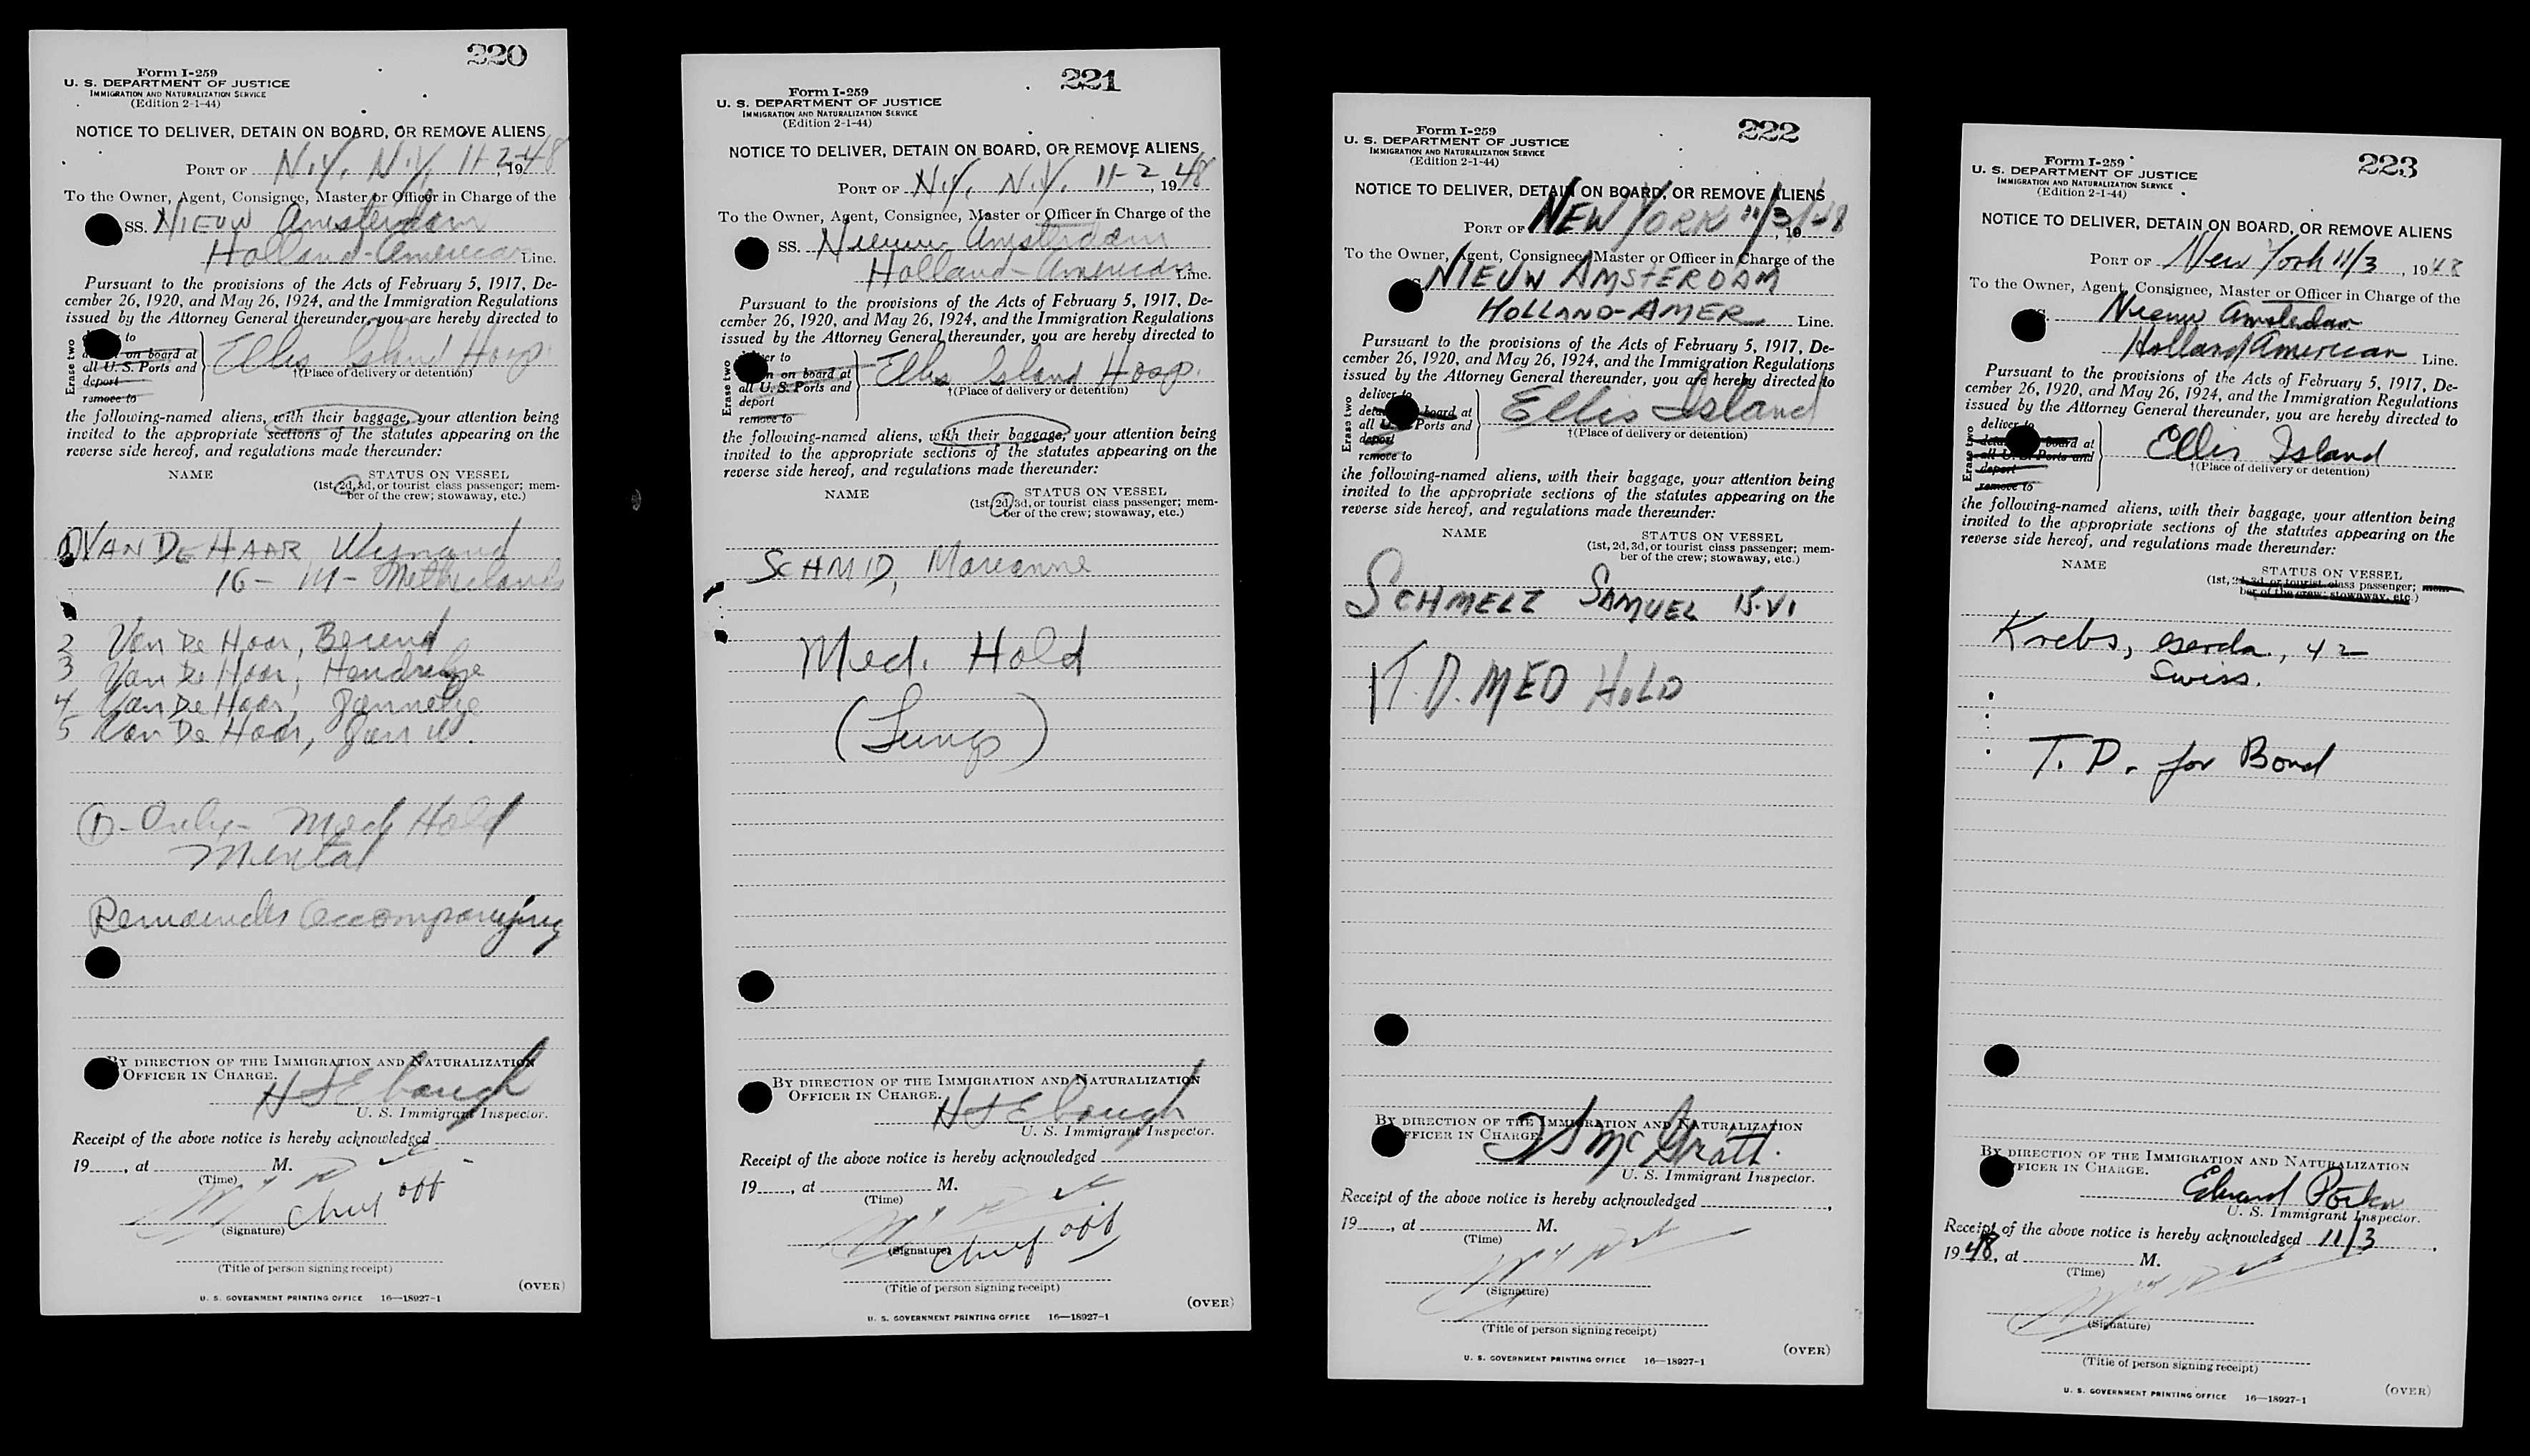 220
Form I-259
U. S. DEPARTMENT OF JUSTICE
IMMIGRATION AND NATURALIZATION SERVICE
(Edition 2-1-44)
NOTICE TO DELIVER, DETAIN ON BOARD, OR REMOVE ALIENS
PORT OF N.Y. N.Y. 11-2-48, 19
To the Owner, Agent, Consignee, Master or Officer in Charge of the
SS. NIEUW Amsterdam
Holland-American Line.
Pursuant to the provisions of the Acts of February 5, 1917, De-
cember 26, 1920, and May 26, 1924, and the Immigration Regulations
issued by the Attorney General thereunder, you are hereby directed to
Erase two
to
on board at
all U. S. Ports and
deport
remove to
Ellis Island Hosp
†(Place of delivery or detention)
the following-named aliens, with their baggage, your attention being
invited to the appropriate sections of the statutes appearing on the
reverse side hereof, and regulations made thereunder:
NAME STATUS ON VESSEL
(1st, 2d, 3d, or tourist class passenger; mem-
ber of the crew; stowaway, etc.)
1 VAN DE HAAR Wijnand
16 - M - Netherlands
2 Van De Haar, Berend
3 Van De Haar, Hendrikje
4 Van De Haar, Jannetje
5 Van De Haar, Jan W.
1 - Only - Med Hold
Mental
Remainder accompanying
BY DIRECTION OF THE IMMIGRATION AND NATURALIZATION
OFFICER IN CHARGE.
H S Ebaugh
U. S. Immigrant Inspector.
Receipt of the above notice is hereby acknowledged
19, at M.
(Time)
Chief off
(Signature)
(Title of person signing receipt)
(OVER)
U. S. GOVERNMENT PRINTING OFFICE 16—18927-1
221
Form I-259
U. S. DEPARTMENT OF JUSTICE
IMMIGRATION AND NATURALIZATION SERVICE
(Edition 2-1-44)
NOTICE TO DELIVER, DETAIN ON BOARD, OR REMOVE ALIENS
PORT OF N.Y. N.Y. 11-2, 1948
To the Owner, Agent, Consignee, Master or Officer in Charge of the
SS. Nieuw Amsterdam
Holland-American Line.
Pursuant to the provisions of the Acts of February 5, 1917, De-
cember 26, 1920, and May 26, 1924, and the Immigration Regulations
issued by the Attorney General thereunder, you are hereby directed to
Erase two
to
on board at
all U. S. Ports and
deport
remove to
Ellis Island Hosp.
†(Place of delivery or detention)
the following-named aliens, with their baggage, your attention being
invited to the appropriate sections of the statutes appearing on the
reverse side hereof, and regulations made thereunder:
NAME STATUS ON VESSEL
(1st, 2d, 3d, or tourist class passenger; mem-
ber of the crew; stowaway, etc.)
SCHMID, Marianne
Med. Hold
(Lungs)
BY DIRECTION OF THE IMMIGRATION AND NATURALIZATION
OFFICER IN CHARGE.
H S Ebaugh
U. S. Immigrant Inspector.
Receipt of the above notice is hereby acknowledged
19, at M.
(Time)
Chief off
(Signature)
(Title of person signing receipt)
(OVER)
U. S. GOVERNMENT PRINTING OFFICE 16—18927-1
222
Form I-259
U. S. DEPARTMENT OF JUSTICE
IMMIGRATION AND NATURALIZATION SERVICE
(Edition 2-1-44)
NOTICE TO DELIVER, DETAIN ON BOARD, OR REMOVE ALIENS
PORT OF NEW YORK 11/3/48, 19
To the Owner, Agent, Consignee, Master or Officer in Charge of the
NIEUW AMSTERDAM
HOLLAND-AMER Line.
Pursuant to the provisions of the Acts of February 5, 1917, De-
cember 26, 1920, and May 26, 1924, and the Immigration Regulations
issued by the Attorney General thereunder, you are hereby directed to
Erase two
deliver to
board at
all Ports and
deport
remove to
Ellis Island
†(Place of delivery or detention)
the following-named aliens, with their baggage, your attention being
invited to the appropriate sections of the statutes appearing on the
reverse side hereof, and regulations made thereunder:
NAME STATUS ON VESSEL
(1st, 2d, 3d, or tourist class passenger; mem-
ber of the crew; stowaway, etc.)
SCHMELZ SAMUEL 15-VI
T.D. MED HOLD
BY DIRECTION OF THE IMMIGRATION AND NATURALIZATION
OFFICER IN CHARGE
McGratt.
U. S. Immigrant Inspector.
Receipt of the above notice is hereby acknowledged
19, at M.
(Time)
(Signature)
(Title of person signing receipt)
(OVER)
U. S. GOVERNMENT PRINTING OFFICE 16—18927-1
223
Form I-259
U. S. DEPARTMENT OF JUSTICE
IMMIGRATION AND NATURALIZATION SERVICE
(Edition 2-1-44)
NOTICE TO DELIVER, DETAIN ON BOARD, OR REMOVE ALIENS
PORT OF New York 11/3, 1948
To the Owner, Agent, Consignee, Master or Officer in Charge of the
Nieuw Amsterdam
Holland American Line.
Pursuant to the provisions of the Acts of February 5, 1917, De-
cember 26, 1920, and May 26, 1924, and the Immigration Regulations
issued by the Attorney General thereunder, you are hereby directed to
Erase two
deliver to
board at
all U. S. Ports and
deport
remove to
Ellis Island
†(Place of delivery or detention)
the following-named aliens, with their baggage, your attention being
invited to the appropriate sections of the statutes appearing on the
reverse side hereof, and regulations made thereunder:
NAME STATUS ON VESSEL
(1st, 2d, 3d, or tourist class passenger; mem-
ber of the crew; stowaway, etc.)
Krebs, Gerda, 42
Swiss.
T. D. for Bond
BY DIRECTION OF THE IMMIGRATION AND NATURALIZATION
OFFICER IN CHARGE.
Edward
U. S. Immigrant Inspector.
Receipt of the above notice is hereby acknowledged 11/3
1948, at M.
(Time)
(Signature)
(Title of person signing receipt)
(OVER)
U. S. GOVERNMENT PRINTING OFFICE 16—18927-1